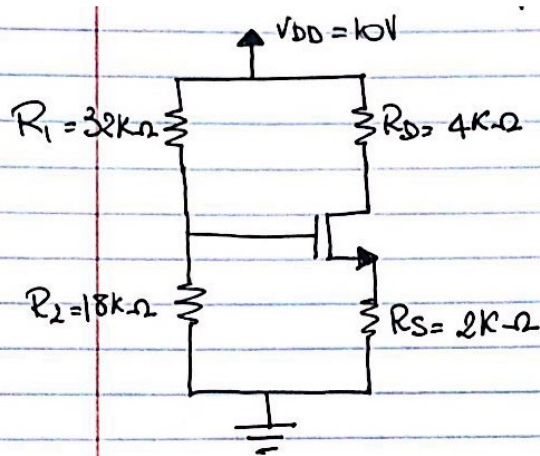 VDD = 10V
R1 = 32KΩ
RD = 4KΩ
R2 = 18KΩ
RS = 2KΩ